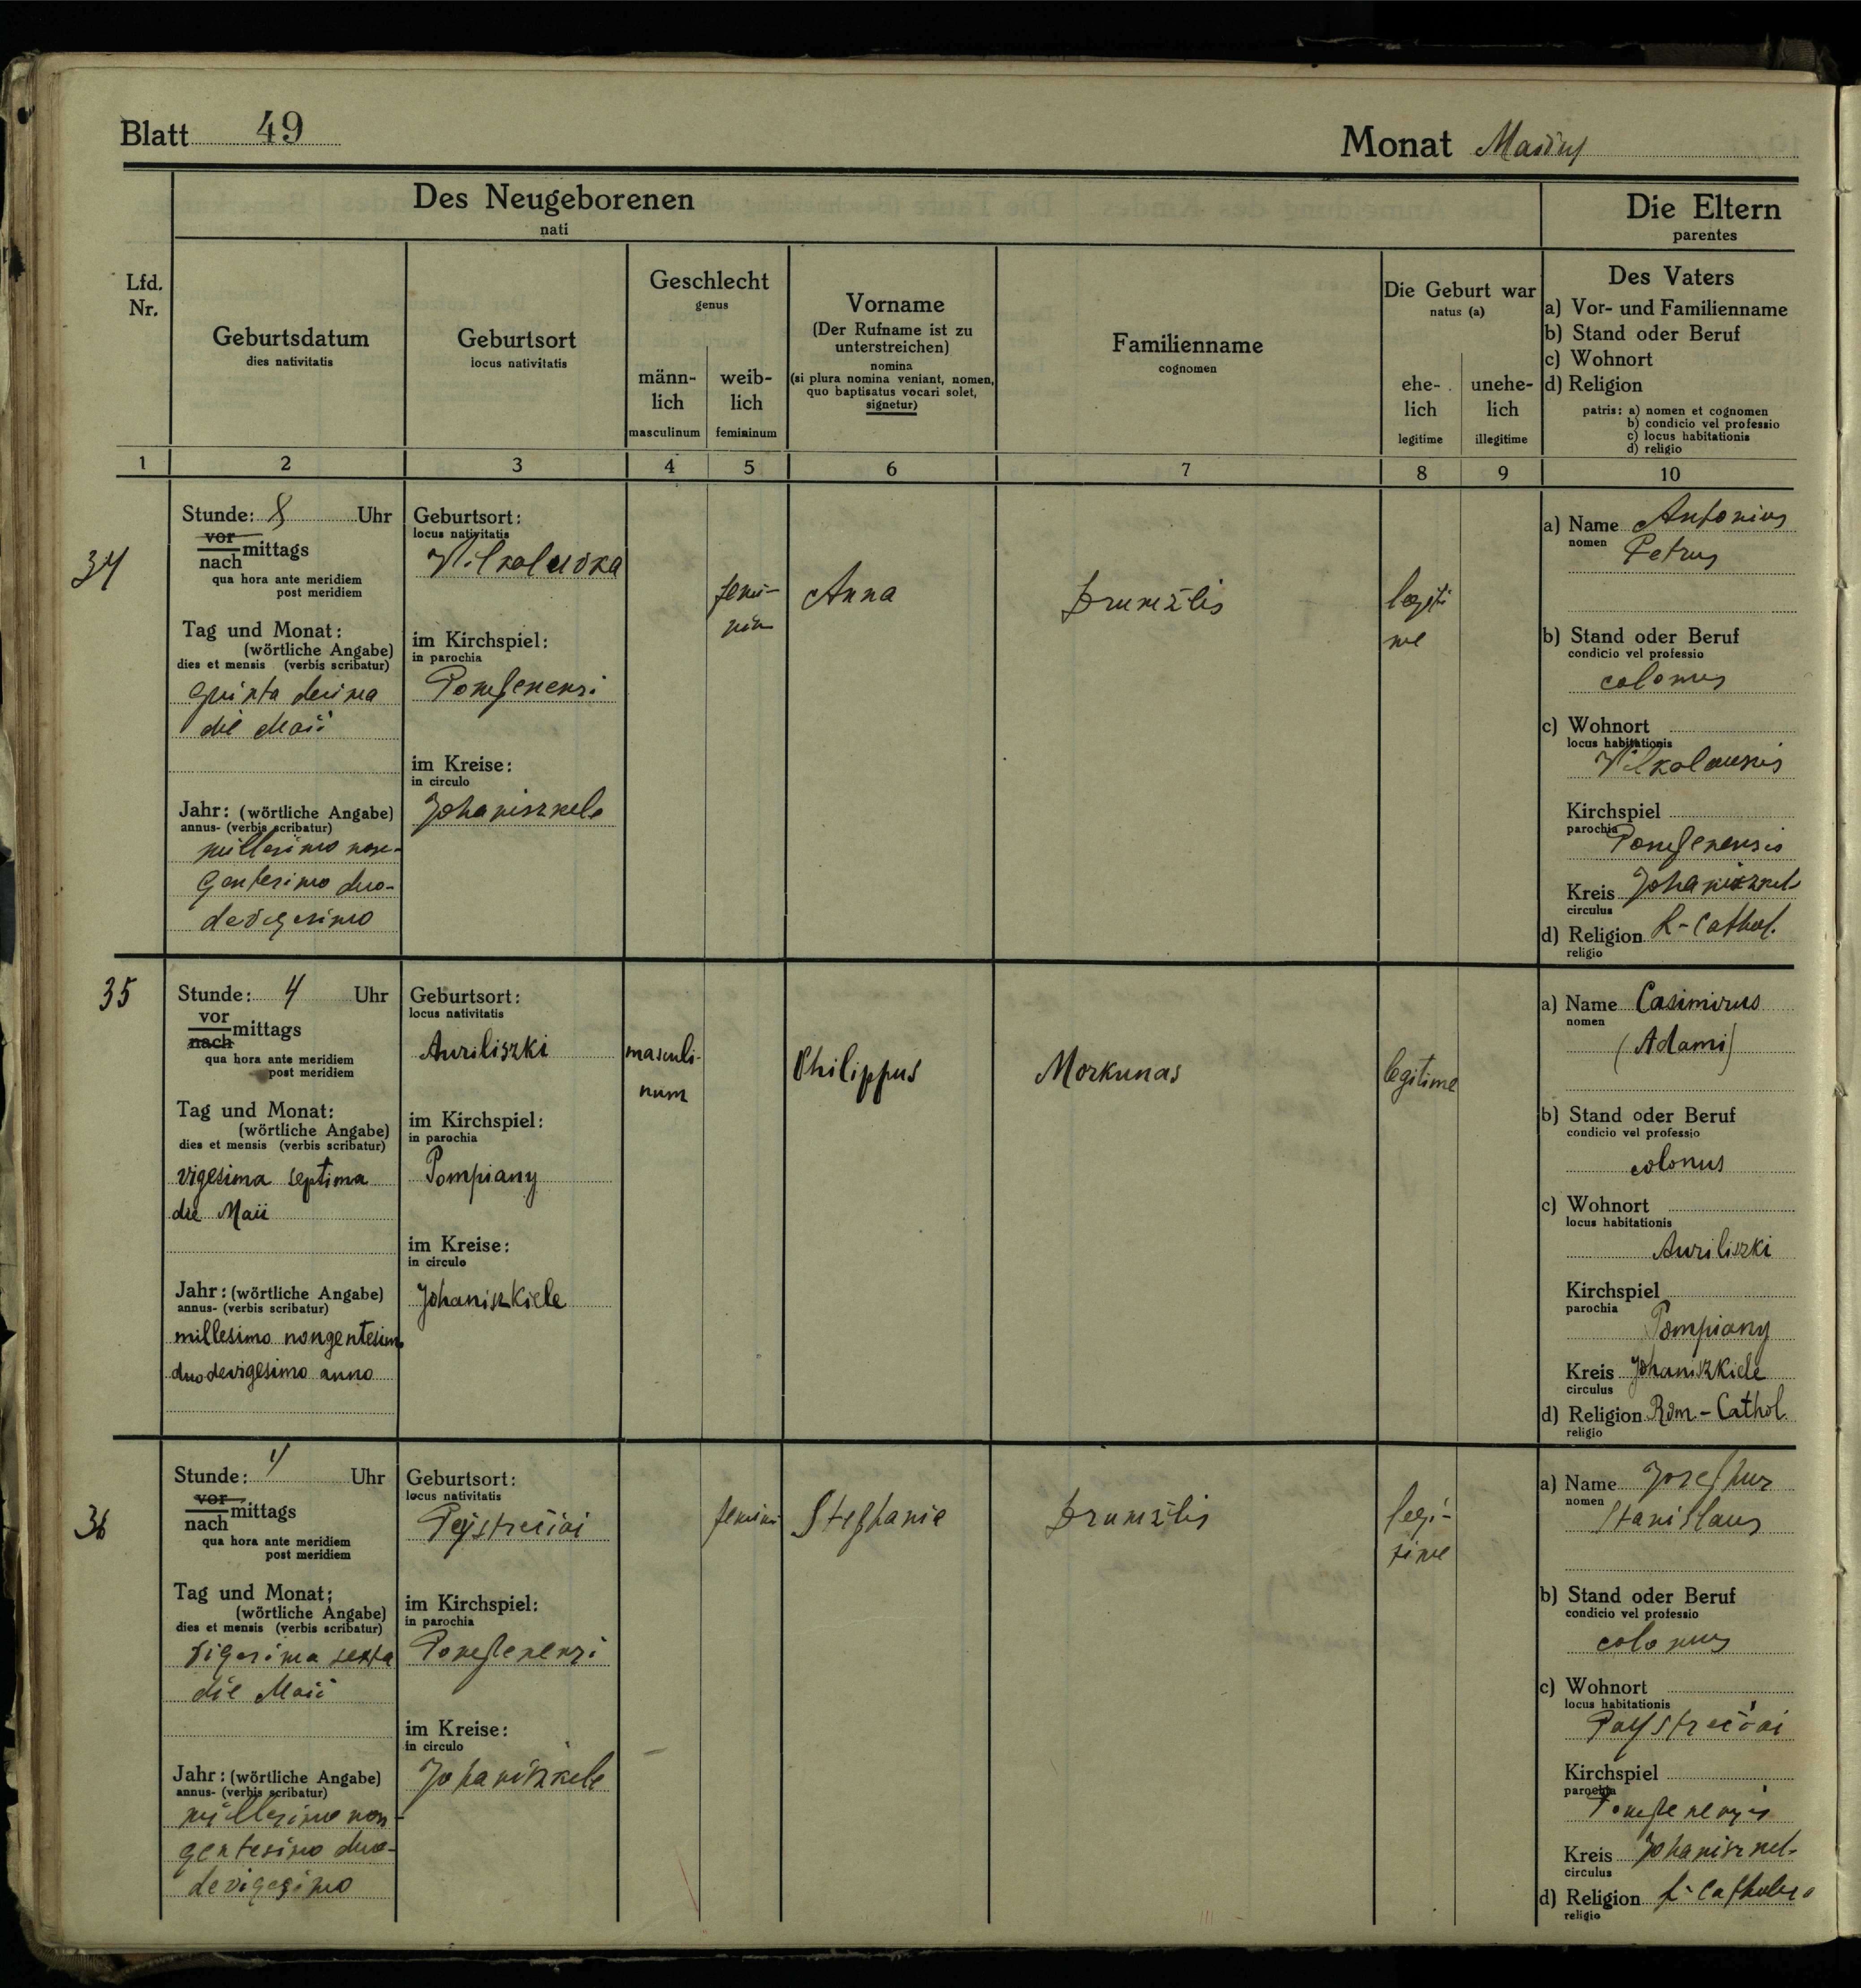 Blatt 49
Monat Maius
Des Neugeborenen
nati
Die Eltern
parentes
Lfd.
Nr.
Geburtsdatum
dies nativitatis
Geburtsort
locus nativitatis
Geschlecht
genus
männ-
lich
masculinum
weib-
lich
femininum
Vorname
(Der Rufname ist zu
unterstreichen)
nomina
(si plura nomina veniant, nomen,
quo baptisatus vocari solet,
signetur)
Familienname
cognomen
Die Geburt war
natus (a)
ehe-
lich
legitime
unehe-
lich
illegitime
Des Vaters
a) Vor- und Familienname
b) Stand oder Beruf
c) Wohnort
d) Religion
patris: a) nomen et cognomen
b) condicio vel professio
c) locus habitationis
d) religio
1 2 3 4 5 6 7 8 9 10
34
Stunde: 8 Uhr
vor
nach mittags
qua hora ante meridiem
post meridiem
Tag und Monat:
(wörtliche Angabe)
dies et mensis (verbis scribatur)
quinta decima
die Maii
Jahr: (wörtliche Angabe)
annus- (verbis scribatur)
millesimo non-
gentesimo duo-
devigesimo
Geburtsort:
locus nativitatis
im Kirchspiel:
in parochia
im Kreise:
in circulo
Johaniszkele
femi-
nin
Anna
legiti
me
a) Name Antonius
nomen
Petrus
b) Stand oder Beruf
condicio vel professio
colonus
c) Wohnort
locus habitationis
Kirchspiel
parochia
Kreis Johaniszkel-
circulus
d) Religion R-Cathol.
religio
35
Stunde: 4 Uhr
vor
nach mittags
qua hora ante meridiem
post meridiem
Tag und Monat:
(wörtliche Angabe)
dies et mensis (verbis scribatur)
vigesima septima
die Maii
Jahr: (wörtliche Angabe)
annus- (verbis scribatur)
millesimo nongentesimo
duodevigesimo anno
Geburtsort:
locus nativitatis
Auriliszki
im Kirchspiel:
in parochia
Pompiany
im Kreise:
in circulo
Johaniszkiele
masculi-
num
Philippus
Morkunas
legitime
a) Name Casimirus
nomen
(Adami)
b) Stand oder Beruf
condicio vel professio
colonus
c) Wohnort
locus habitationis
Auriliszki
Kirchspiel
parochia
Pompiany
Kreis Johaniszkiele
circulus
d) Religion Rom.-Cathol.
religio
36
Stunde: 4 Uhr
vor
nach mittags
qua hora ante meridiem
post meridiem
Tag und Monat:
(wörtliche Angabe)
dies et mensis (verbis scribatur)
vigesima sexta
die Maii
Jahr: (wörtliche Angabe)
annus- (verbis scribatur)
millesimo non-
gentesimo duo-
devigesimo
Geburtsort:
locus nativitatis
im Kirchspiel:
in parochia
im Kreise:
in circulo
Johaniszkele
femini-
Stephania
legi-
time
a) Name Josephus
nomen
Stanislaus
b) Stand oder Beruf
condicio vel professio
colonus
c) Wohnort
locus habitationis
Kirchspiel
parochia
Kreis Johaniszkel-
circulus
d) Religion
religio